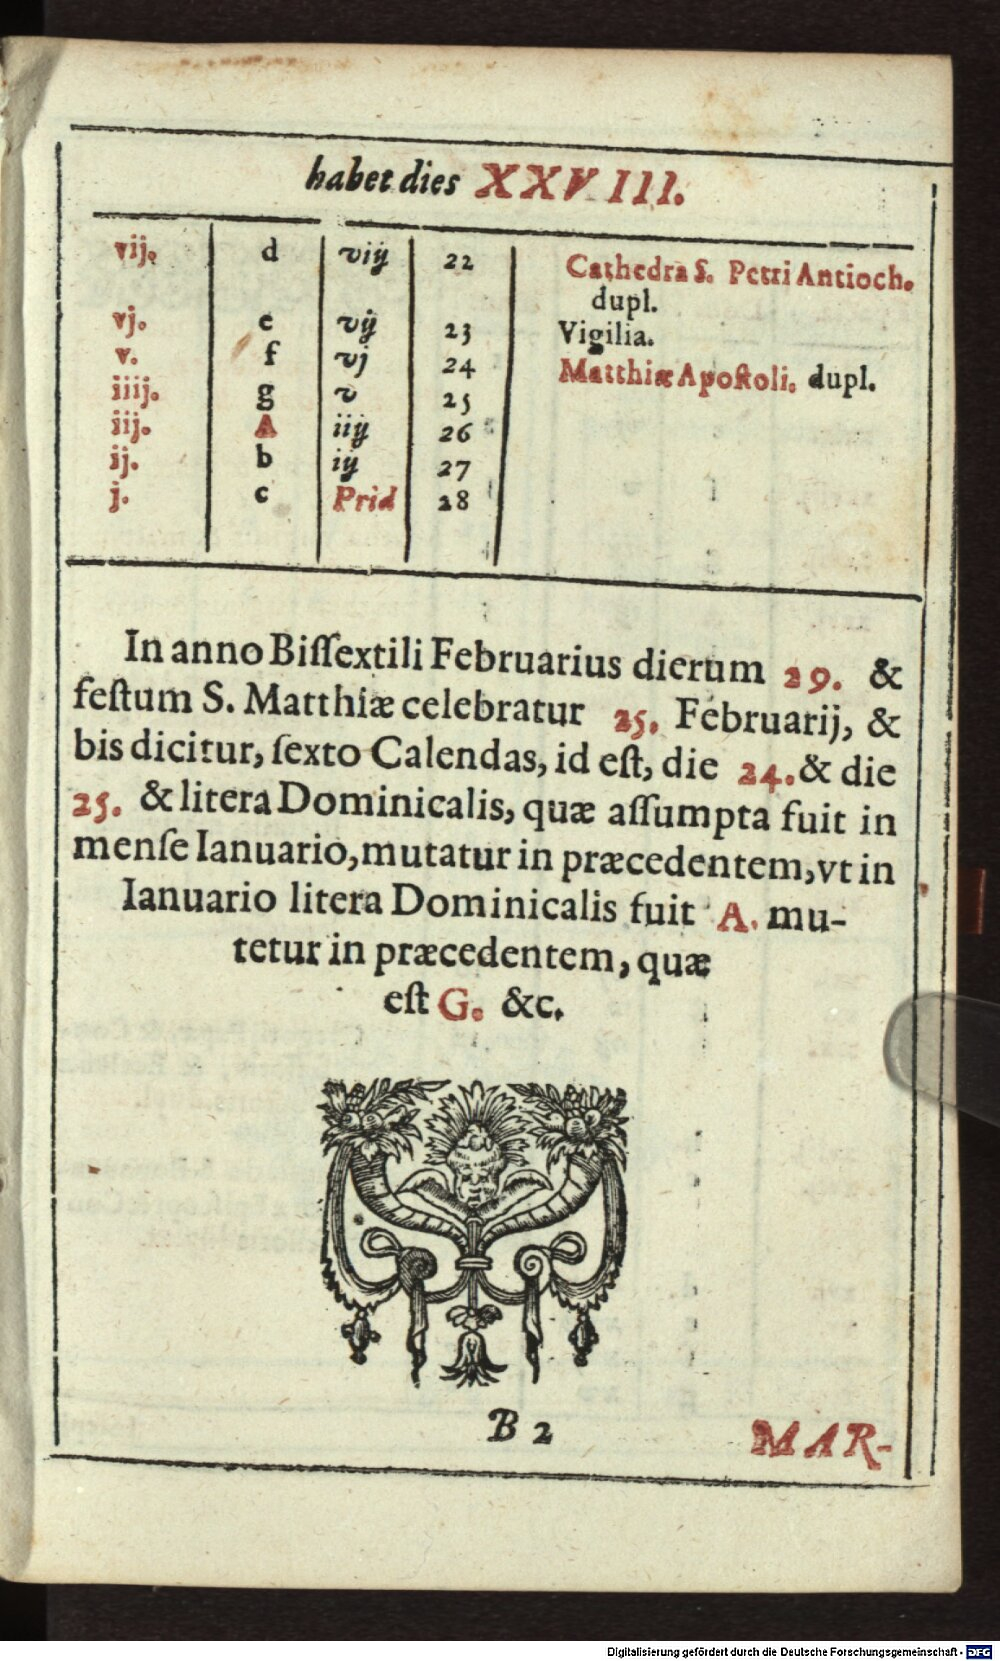 habet dies XXVIII.
vij. d viij 22 Cathedra S. Petri Antioch.
dupl.
vj. e vij 23 Vigilia.
v. f vj 24 Matthiæ Apoſtoli. dupl.
iiij. g v 25
iij. A iiij 26
ij. b iij 27
j. c Prid 28
In anno Biſſextili Februarius dierum 29. &
feſtum S. Matthiæ celebratur 25. Februarij, &
bis dicitur, ſexto Calendas, id eſt, die 24. & die
25. & litera Dominicalis, quæ aſſumpta fuit in
menſe Ianuario, mutatur in præcedentem, vt in
Ianuario litera Dominicalis fuit A. mu-
tetur in præcedentem, quæ
eſt G. &c.
B 2 MAR-
Digitalisierung gefördert durch die Deutsche Forschungsgemeinschaft - DFG